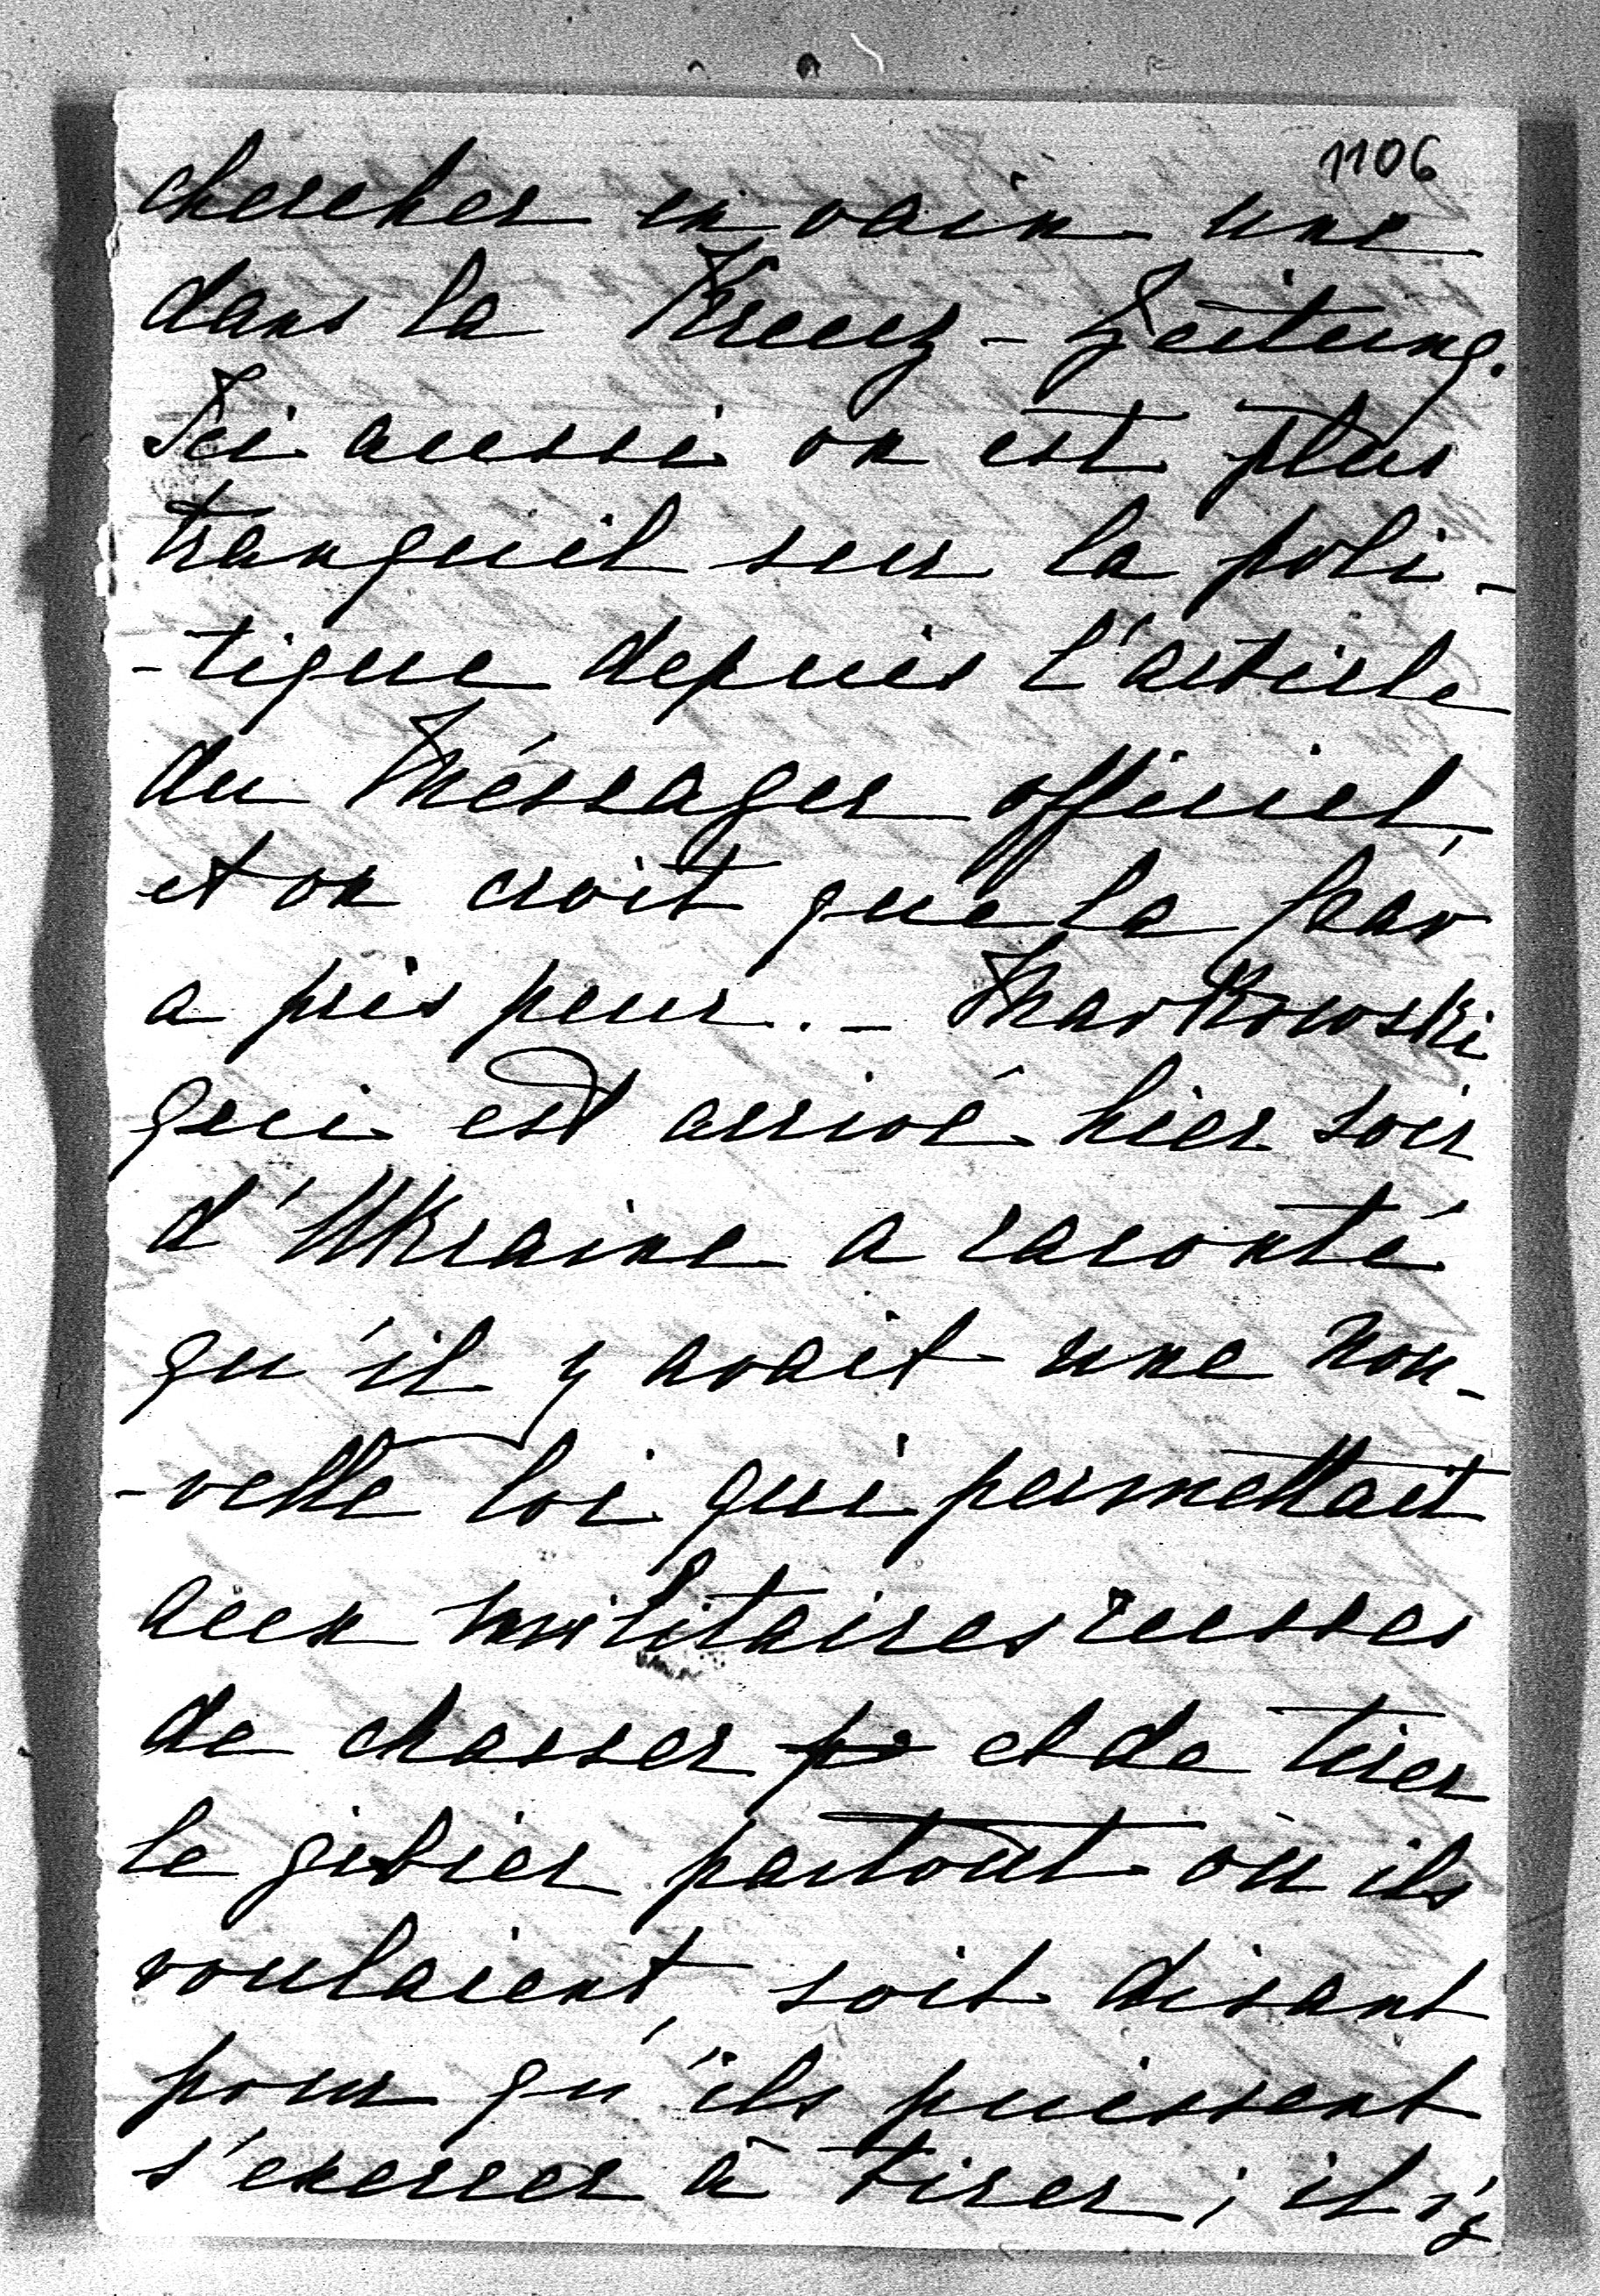 1106
chercher en vain une
dans la Kreuz-Zeitung.
Ici aussi on est plus
tranquil sur la poli-
-tique depuis l'article
du Méssager officiel,
et on croit que la
a pris peur. - Markowski
qui est arrivé hier soir
d'Ukraine a raconté
qu'il y avait une nou-
-velle loi qui permettait
aux militaires russes
de chasser et de tirer
le gibier partout où ils
voulaient, soit disant
pour qu'ils puissent
s'exercer à tirer; il s'y